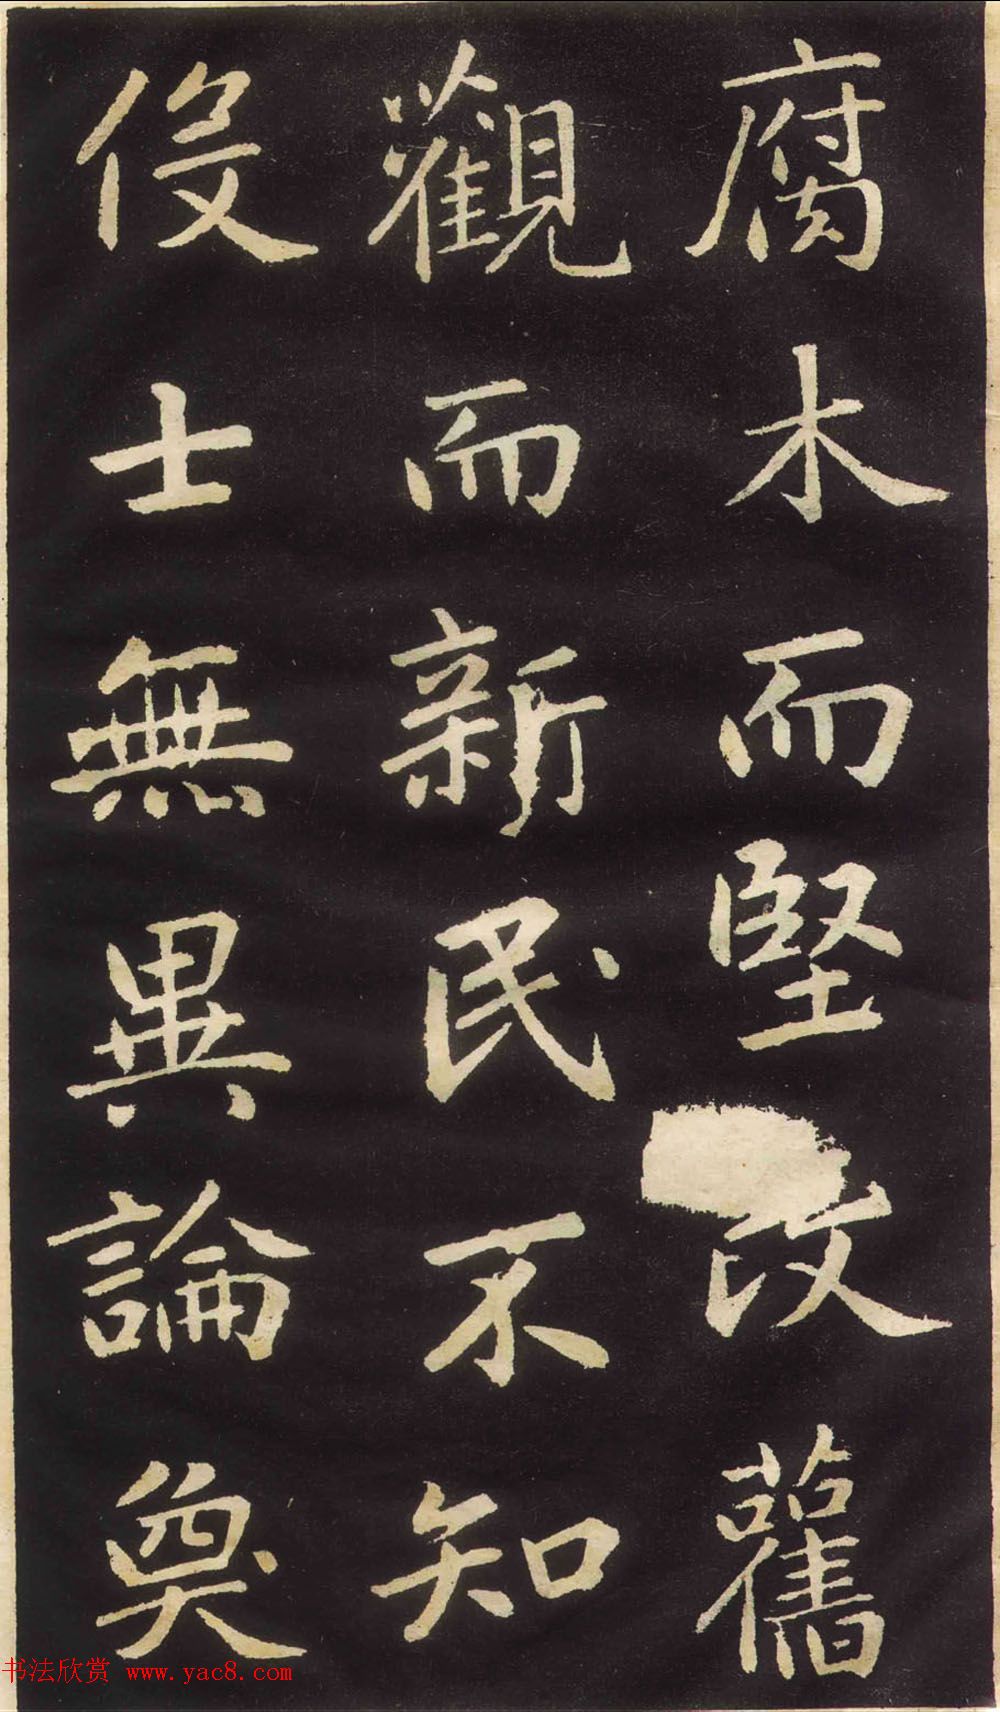 腐木而堅改舊
觀而新民不知
役士無異論奐
书法欣赏 www.yac8.com